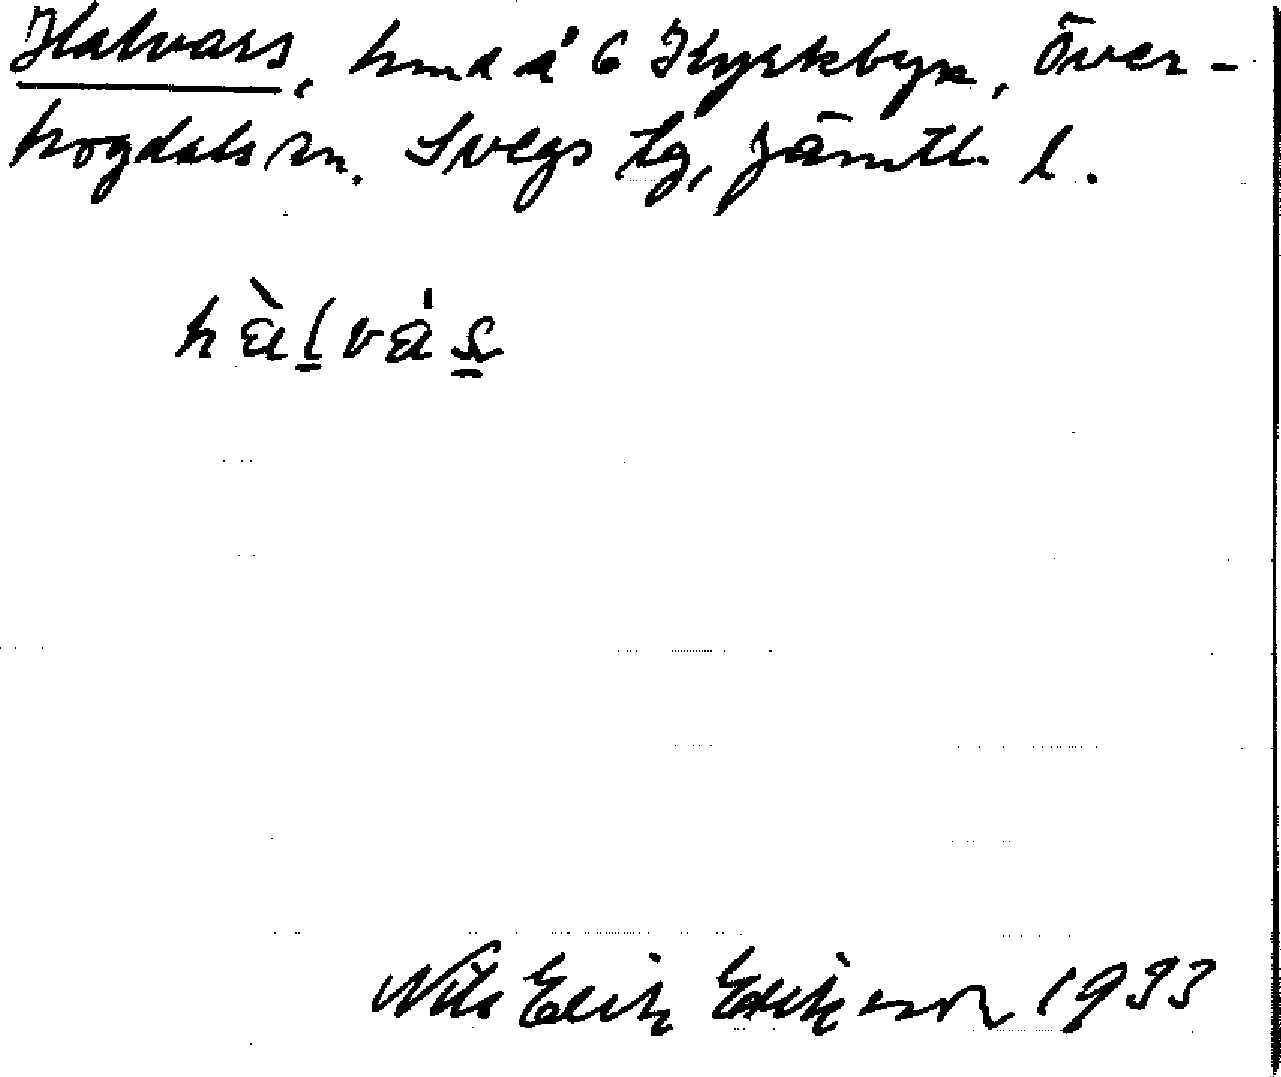 Halvars, hmd å 6 Kyrkbyn, Över-
hogdals sn. Svegs tg, Jämtl. l.
hàlvás
Nils Erik Eriksson 1933